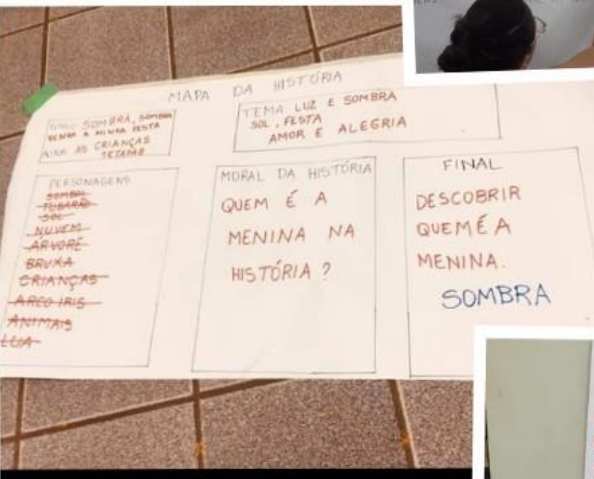 MAPA DA HISTÓRIA
SOMBRA, SOMBRA
VENHA A MINHA FESTA
AS CRIANÇAS
TEMA LUZ E SOMBRA
SOL, FESTA
AMOR E ALEGRIA
PERSONAGENS
SOMBRA
TUBARÃO
SOL
NUVEM
ARVORE
BRUXA
CRIANÇAS
ARCO IRIS
ANIMAIS
LUA
MORAL DA HISTÓRIA
QUEM É A
MENINA NA
HISTÓRIA?
FINAL
DESCOBRIR
QUEM É A
MENINA.
SOMBRA